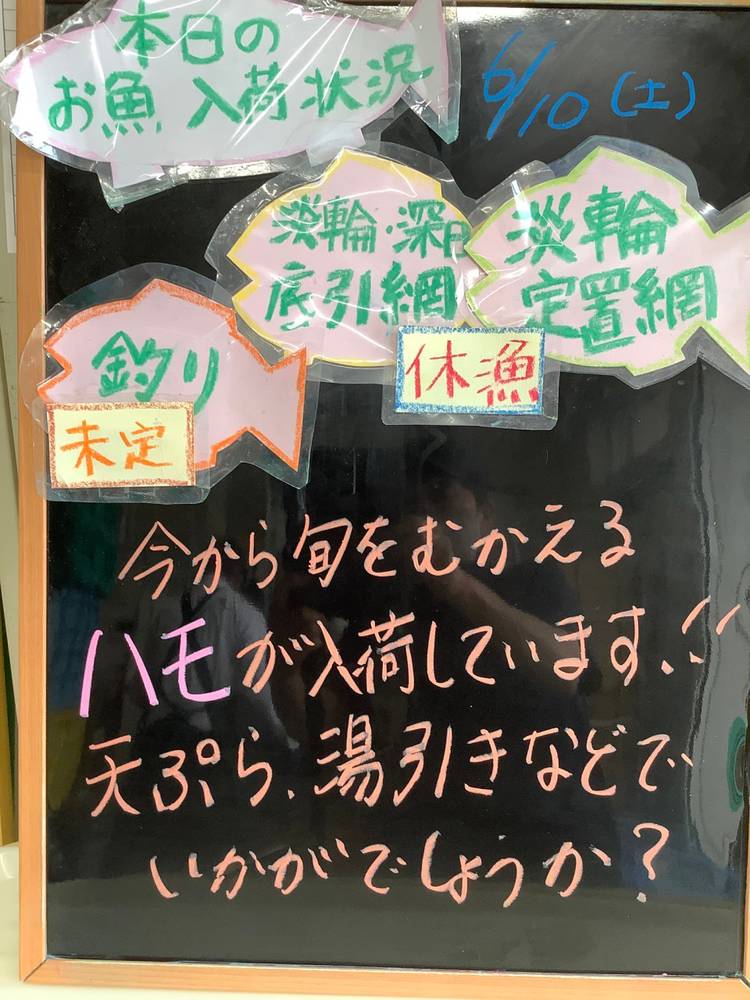 本日の
お魚 入荷状況
6/10(土)
淡輪・深日
底引網
淡輪
定置網
休漁
釣り
未定
今から旬をむかえる
ハモが入荷しています!!
天ぷら、湯引きなどで
いかがでしょうか?